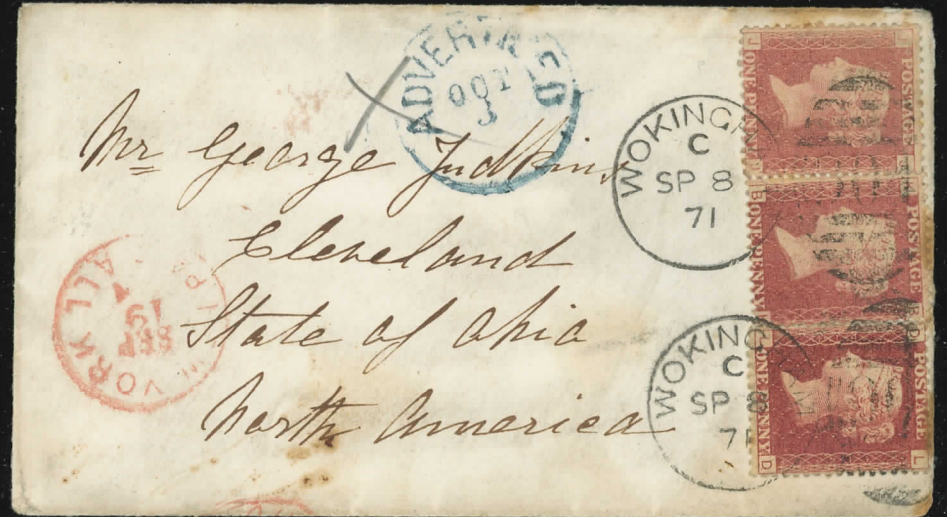 ADVERTISED
OCT
3
Mr George Judkins
Cleveland
State of Ohio
North America
WOKINGHAM
C
SP 8
71
WOKINGHAM
C
SP 8
71
YORK
PAID ALL
SEP
19
POSTAGE
ONE PENNY
J
POSTAGE
ONE PENNY
B
POSTAGE
ONE PENNY
D
L